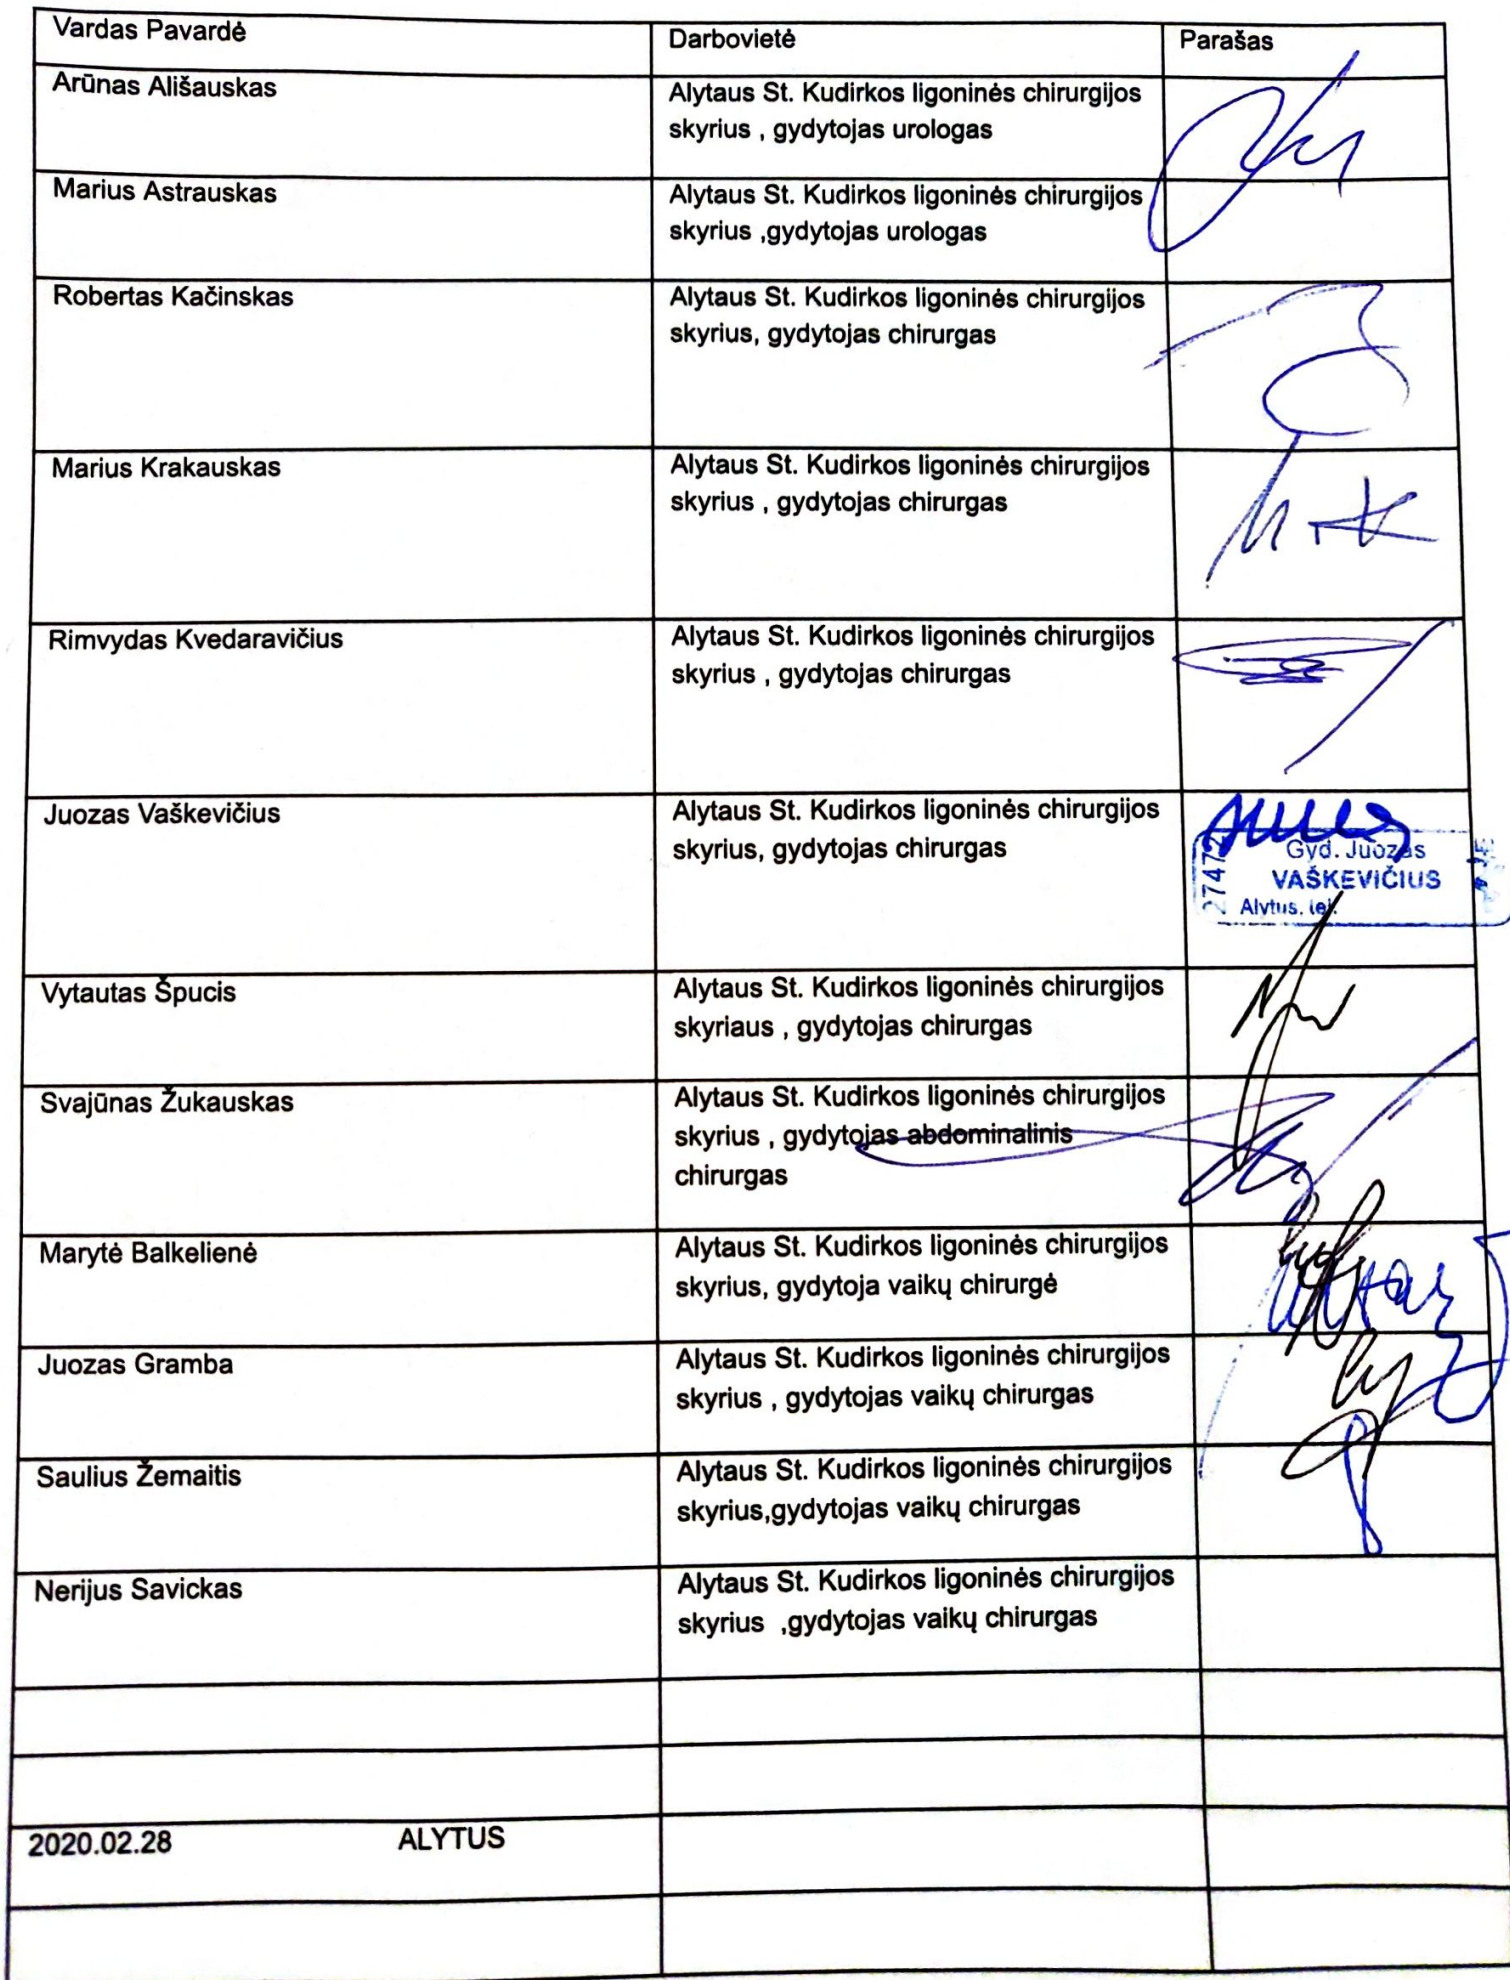 Vardas Pavardė Darbovietė Parašas
Arūnas Ališauskas Alytaus St. Kudirkos ligoninės chirurgijos
skyrius , gydytojas urologas
Marius Astrauskas Alytaus St. Kudirkos ligoninės chirurgijos
skyrius ,gydytojas urologas
Robertas Kačinskas Alytaus St. Kudirkos ligoninės chirurgijos
skyrius, gydytojas chirurgas
Marius Krakauskas Alytaus St. Kudirkos ligoninės chirurgijos
skyrius , gydytojas chirurgas
Rimvydas Kvedaravičius Alytaus St. Kudirkos ligoninės chirurgijos
skyrius , gydytojas chirurgas
Juozas Vaškevičius Alytaus St. Kudirkos ligoninės chirurgijos
skyrius, gydytojas chirurgas
27472
Gyd. Juozas
VAŠKEVIČIUS
Alytus, tel.
Vytautas Špucis Alytaus St. Kudirkos ligoninės chirurgijos
skyriaus , gydytojas chirurgas
Svajūnas Žukauskas Alytaus St. Kudirkos ligoninės chirurgijos
skyrius , gydytojas abdominalinis
chirurgas
Marytė Balkelienė Alytaus St. Kudirkos ligoninės chirurgijos
skyrius, gydytoja vaikų chirurgė
Juozas Gramba Alytaus St. Kudirkos ligoninės chirurgijos
skyrius , gydytojas vaikų chirurgas
Saulius Žemaitis Alytaus St. Kudirkos ligoninės chirurgijos
skyrius,gydytojas vaikų chirurgas
Nerijus Savickas Alytaus St. Kudirkos ligoninės chirurgijos
skyrius ,gydytojas vaikų chirurgas
2020.02.28 ALYTUS